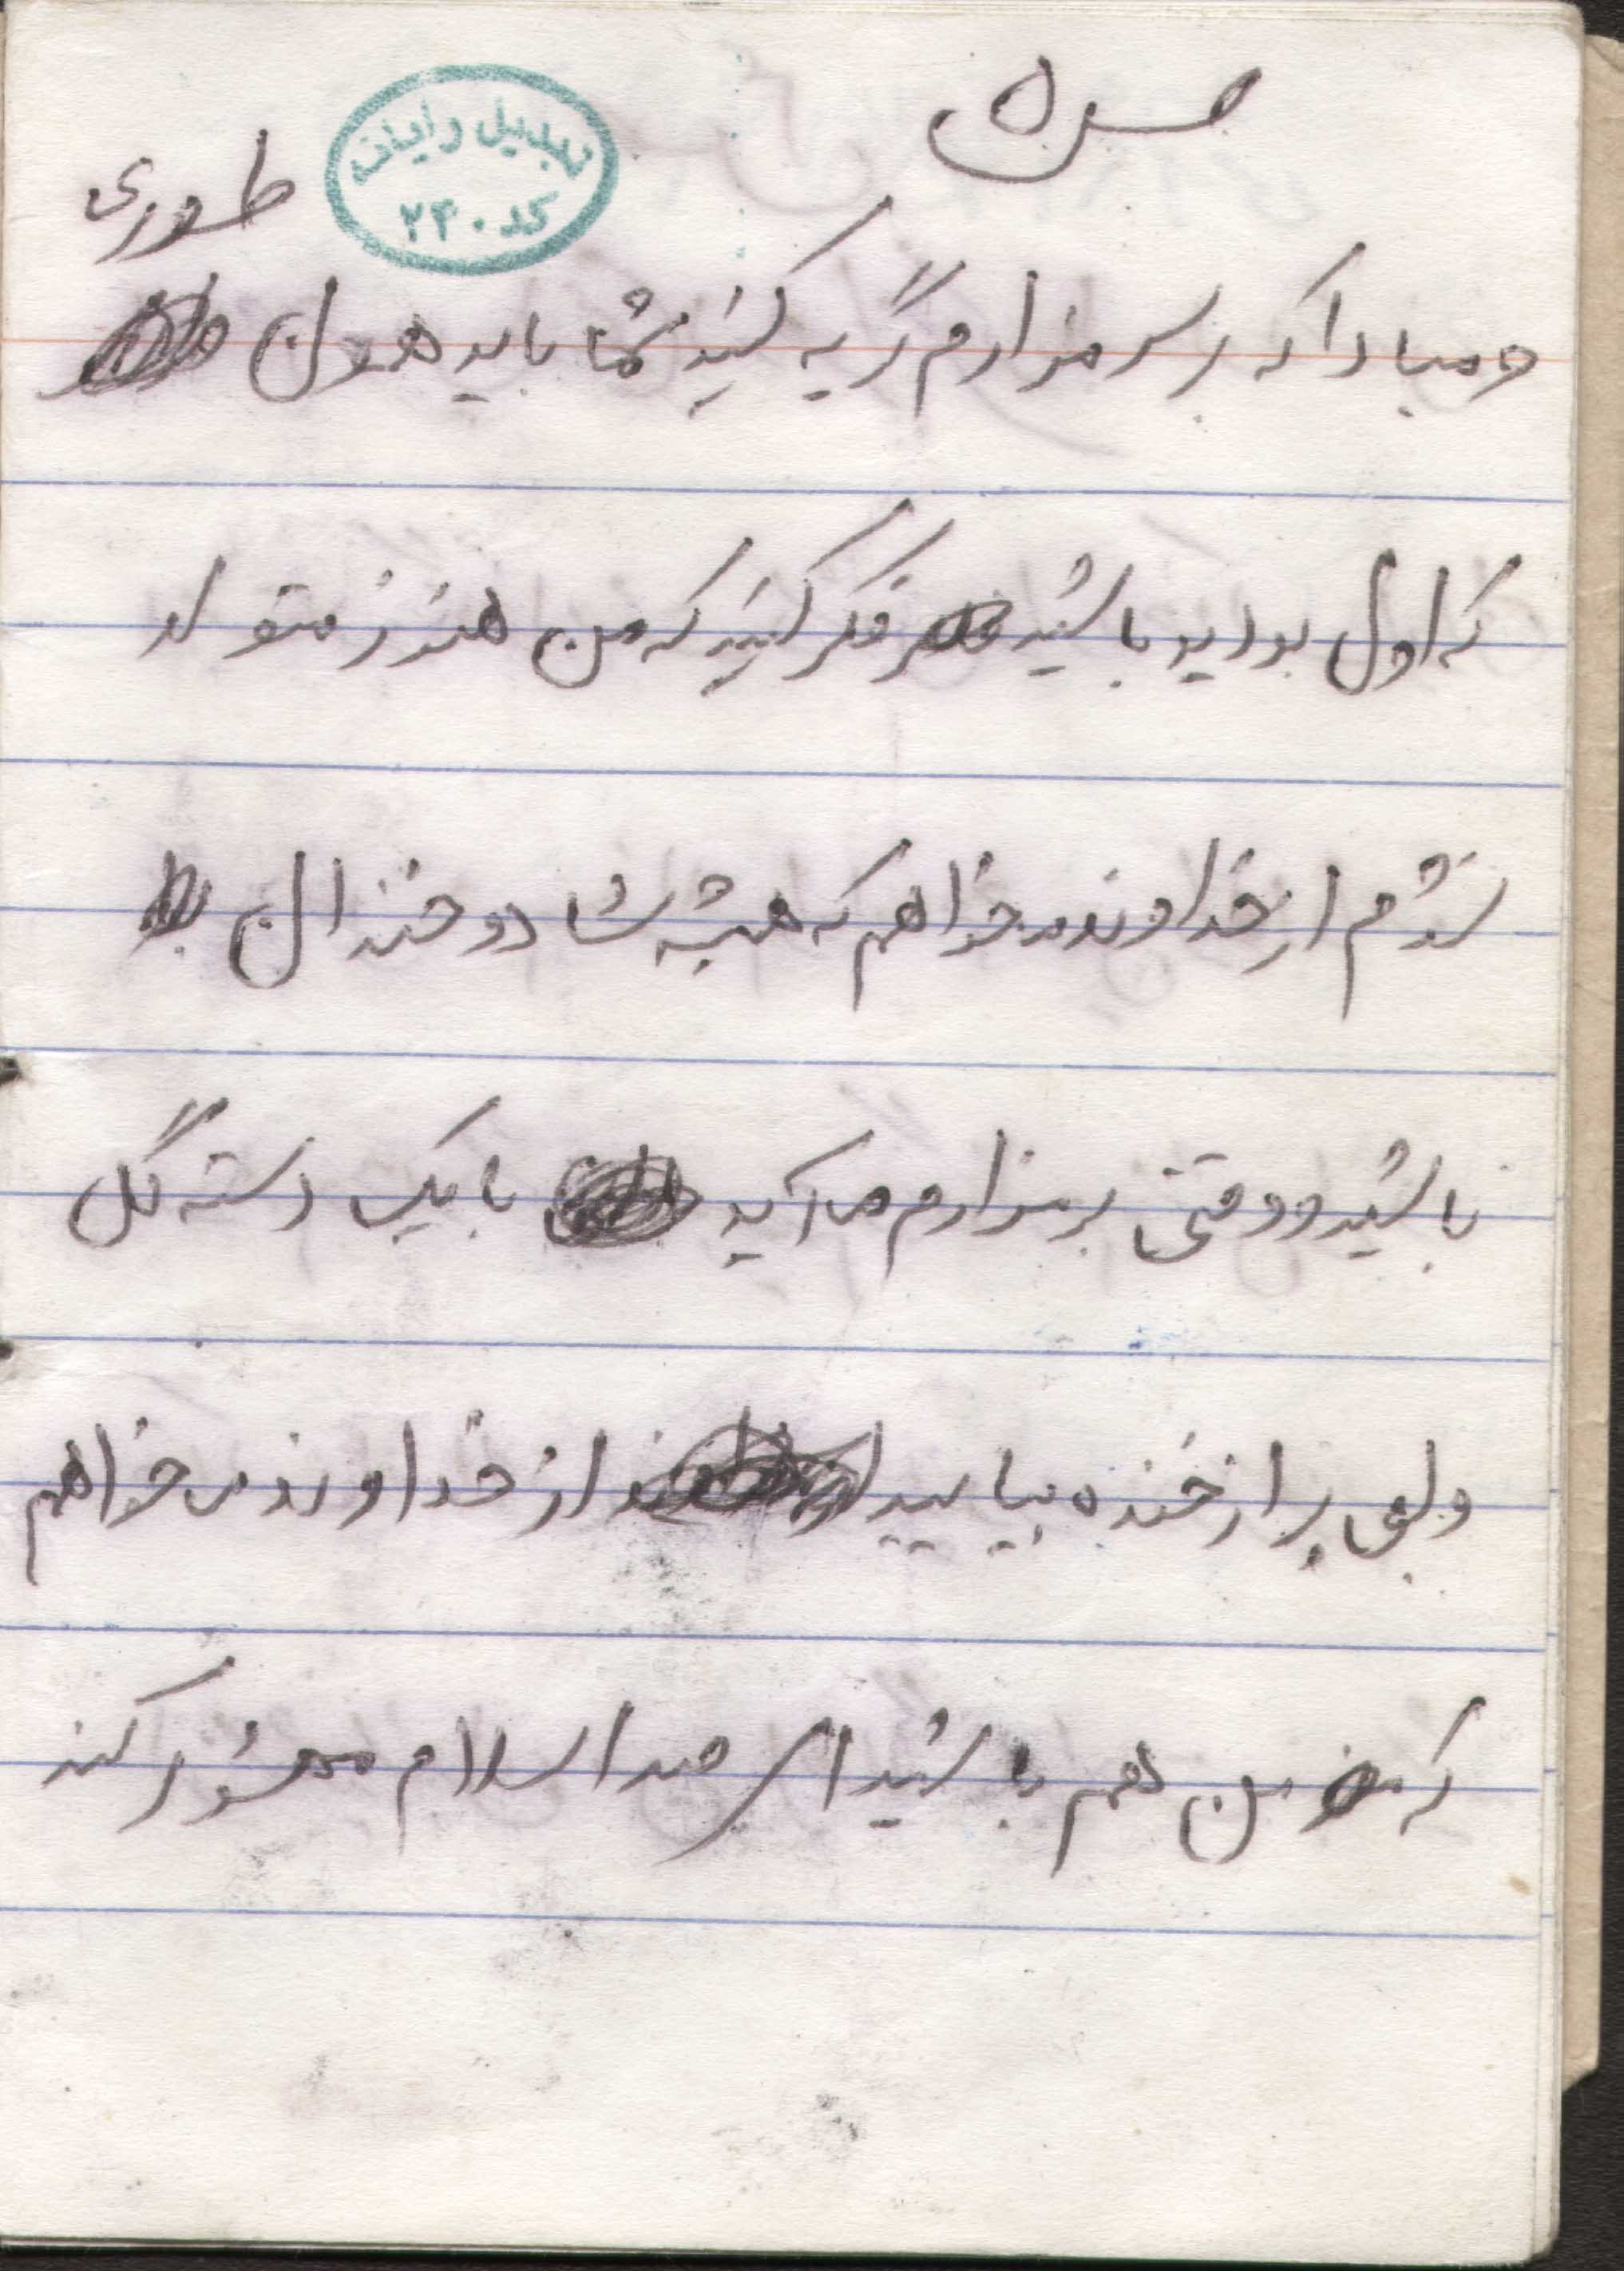 تبدیل رایانه
کد ۲۴۰
طوری
و مبادا که بر سر مزارم گریه کنید شما باید همون
که اول بودید باشید فکر کنید که من هنوز متولد
نشدم از خداوند می خواهم که همیشه شاد و خندان
باشید و وقتی بر مزارم می آید با یک دسته گل
و لبی پر از خنده بیایید از خداوند می خواهم
که من هم با شهدای صدر اسلام محشور کند